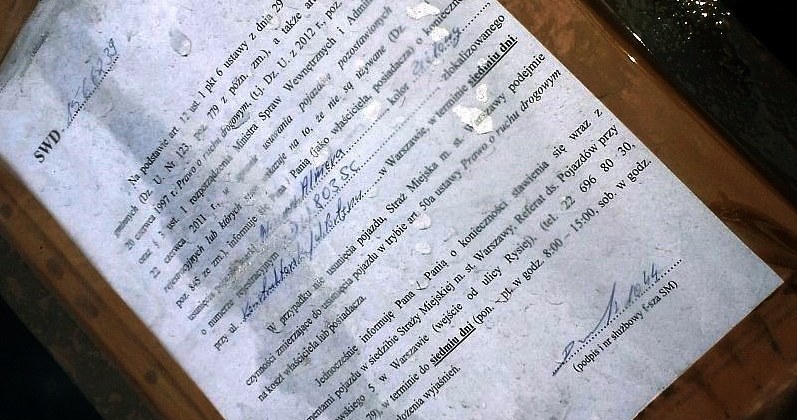 SWD -
Na podstawie art. 12 ust. 1 pkt 6 ustawy z dnia 29
gminnych (Dz. U. Nr 123, poz. 779 z późn. zm.), a także art.
20 czerwca 1997 r. Prawo o ruchu drogowym, (t.j. Dz. U. z 2012 r., poz.
ust. 1 rozporządzenia Ministra Spraw Wewnętrznych i Admin
22 czerwca 2011 r., w usuwania pojazdów pozostawionych
rejestracyjnych lub których stan wskazuje na to, że nie są używane (Dz.
poz. 845 ze zm.) informuję Pana / Panią (jako właściciela/posiadacza) o konieczności
usunięcia pojazdu Almera kolor zielony
o numerze rejestracyjnym zlokalizowanego
przy ul. w Warszawie, w terminie siedmiu dni.
W przypadku nie usunięcia pojazdu, Straż Miejska m. st. Warszawy podejmie
czynności zmierzające do usunięcia pojazdu w trybie art. 50a ustawy Prawo o ruchu drogowym
na koszt właściciela lub posiadacza.
Jednocześnie informuję Pana / Panią o konieczności stawienia się wraz z
pojazdu w siedzibie Straży Miejskiej m. st. Warszawy, Referat ds. Pojazdów przy
5 w Warszawie (wejście od ulicy Rysiej), (tel. 22 696 80 30,
w terminie do siedmiu dni (pon. – pt. w godz. 8:00 – 15:00, sob. w godz.
wyjaśnień.
(podpis i nr służbowy f-sza SM)